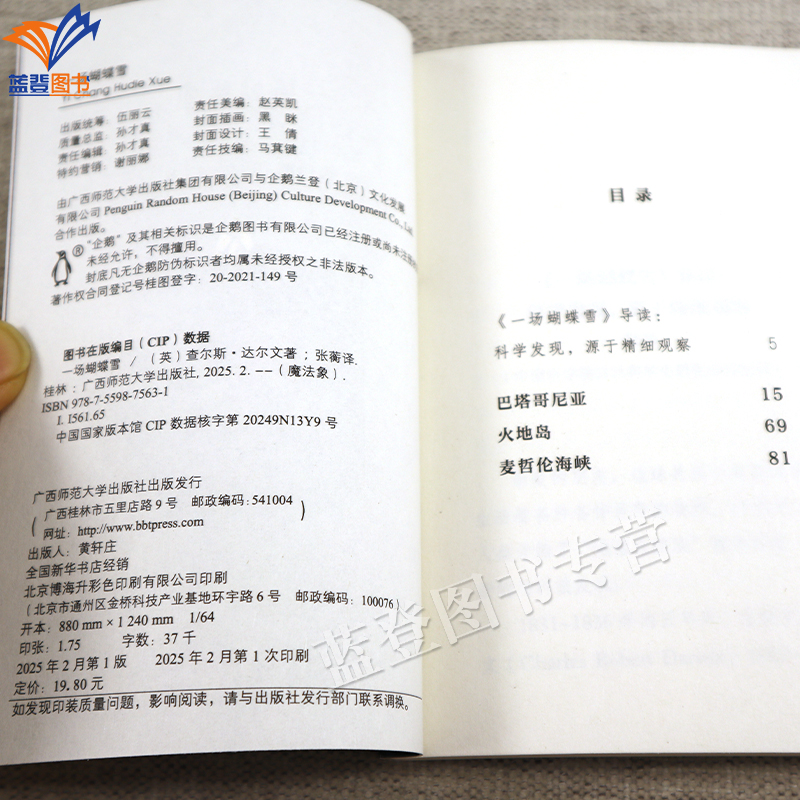 蓝登图书
一场蝴蝶雪
Yi Chang Hudie Xue
出版统筹：伍丽云
质量总监：孙才真
责任编辑：孙才真
特约营销：谢丽娜
责任美编：赵英凯
封面插画：黑眯
封面设计：王倩
责任技编：马萁键
由广西师范大学出版社集团有限公司与企鹅兰登（北京）文化发展
有限公司 Penguin Random House (Beijing) Culture Development Co., Ltd.
合作出版。
®“企鹅”及其相关标识是企鹅图书有限公司已经注册或尚未注册的
未经允许，不得擅用。
封底凡无企鹅防伪标识者均属未经授权之非法版本。
著作权合同登记号桂图登字：20-2021-149 号
图书在版编目（CIP）数据
一场蝴蝶雪 /（英）查尔斯·达尔文著；张蘅译.
桂林：广西师范大学出版社, 2025. 2. --（魔法象）.
ISBN 978-7-5598-7563-1
I. I561.65
中国国家版本馆 CIP 数据核字第 20249N13Y9 号
广西师范大学出版社出版发行
（广西桂林市五里店路 9 号 邮政编码：541004
网址：http://www.bbtpress.com）
出版人：黄轩庄
全国新华书店经销
北京博海升彩色印刷有限公司印刷
（北京市通州区金桥科技产业基地环宇路 6 号 邮政编码：100076）
开本：880 mm × 1 240 mm 1/64
印张：1.75 字数：37 千
2025 年 2 月第 1 版 2025 年 2 月第 1 次印刷
定价：19.80 元
如发现印装质量问题，影响阅读，请与出版社发行部门联系调换。
目录
《一场蝴蝶雪》导读：
科学发现，源于精细观察 5
巴塔哥尼亚 15
火地岛 69
麦哲伦海峡 81
蓝登图书专营